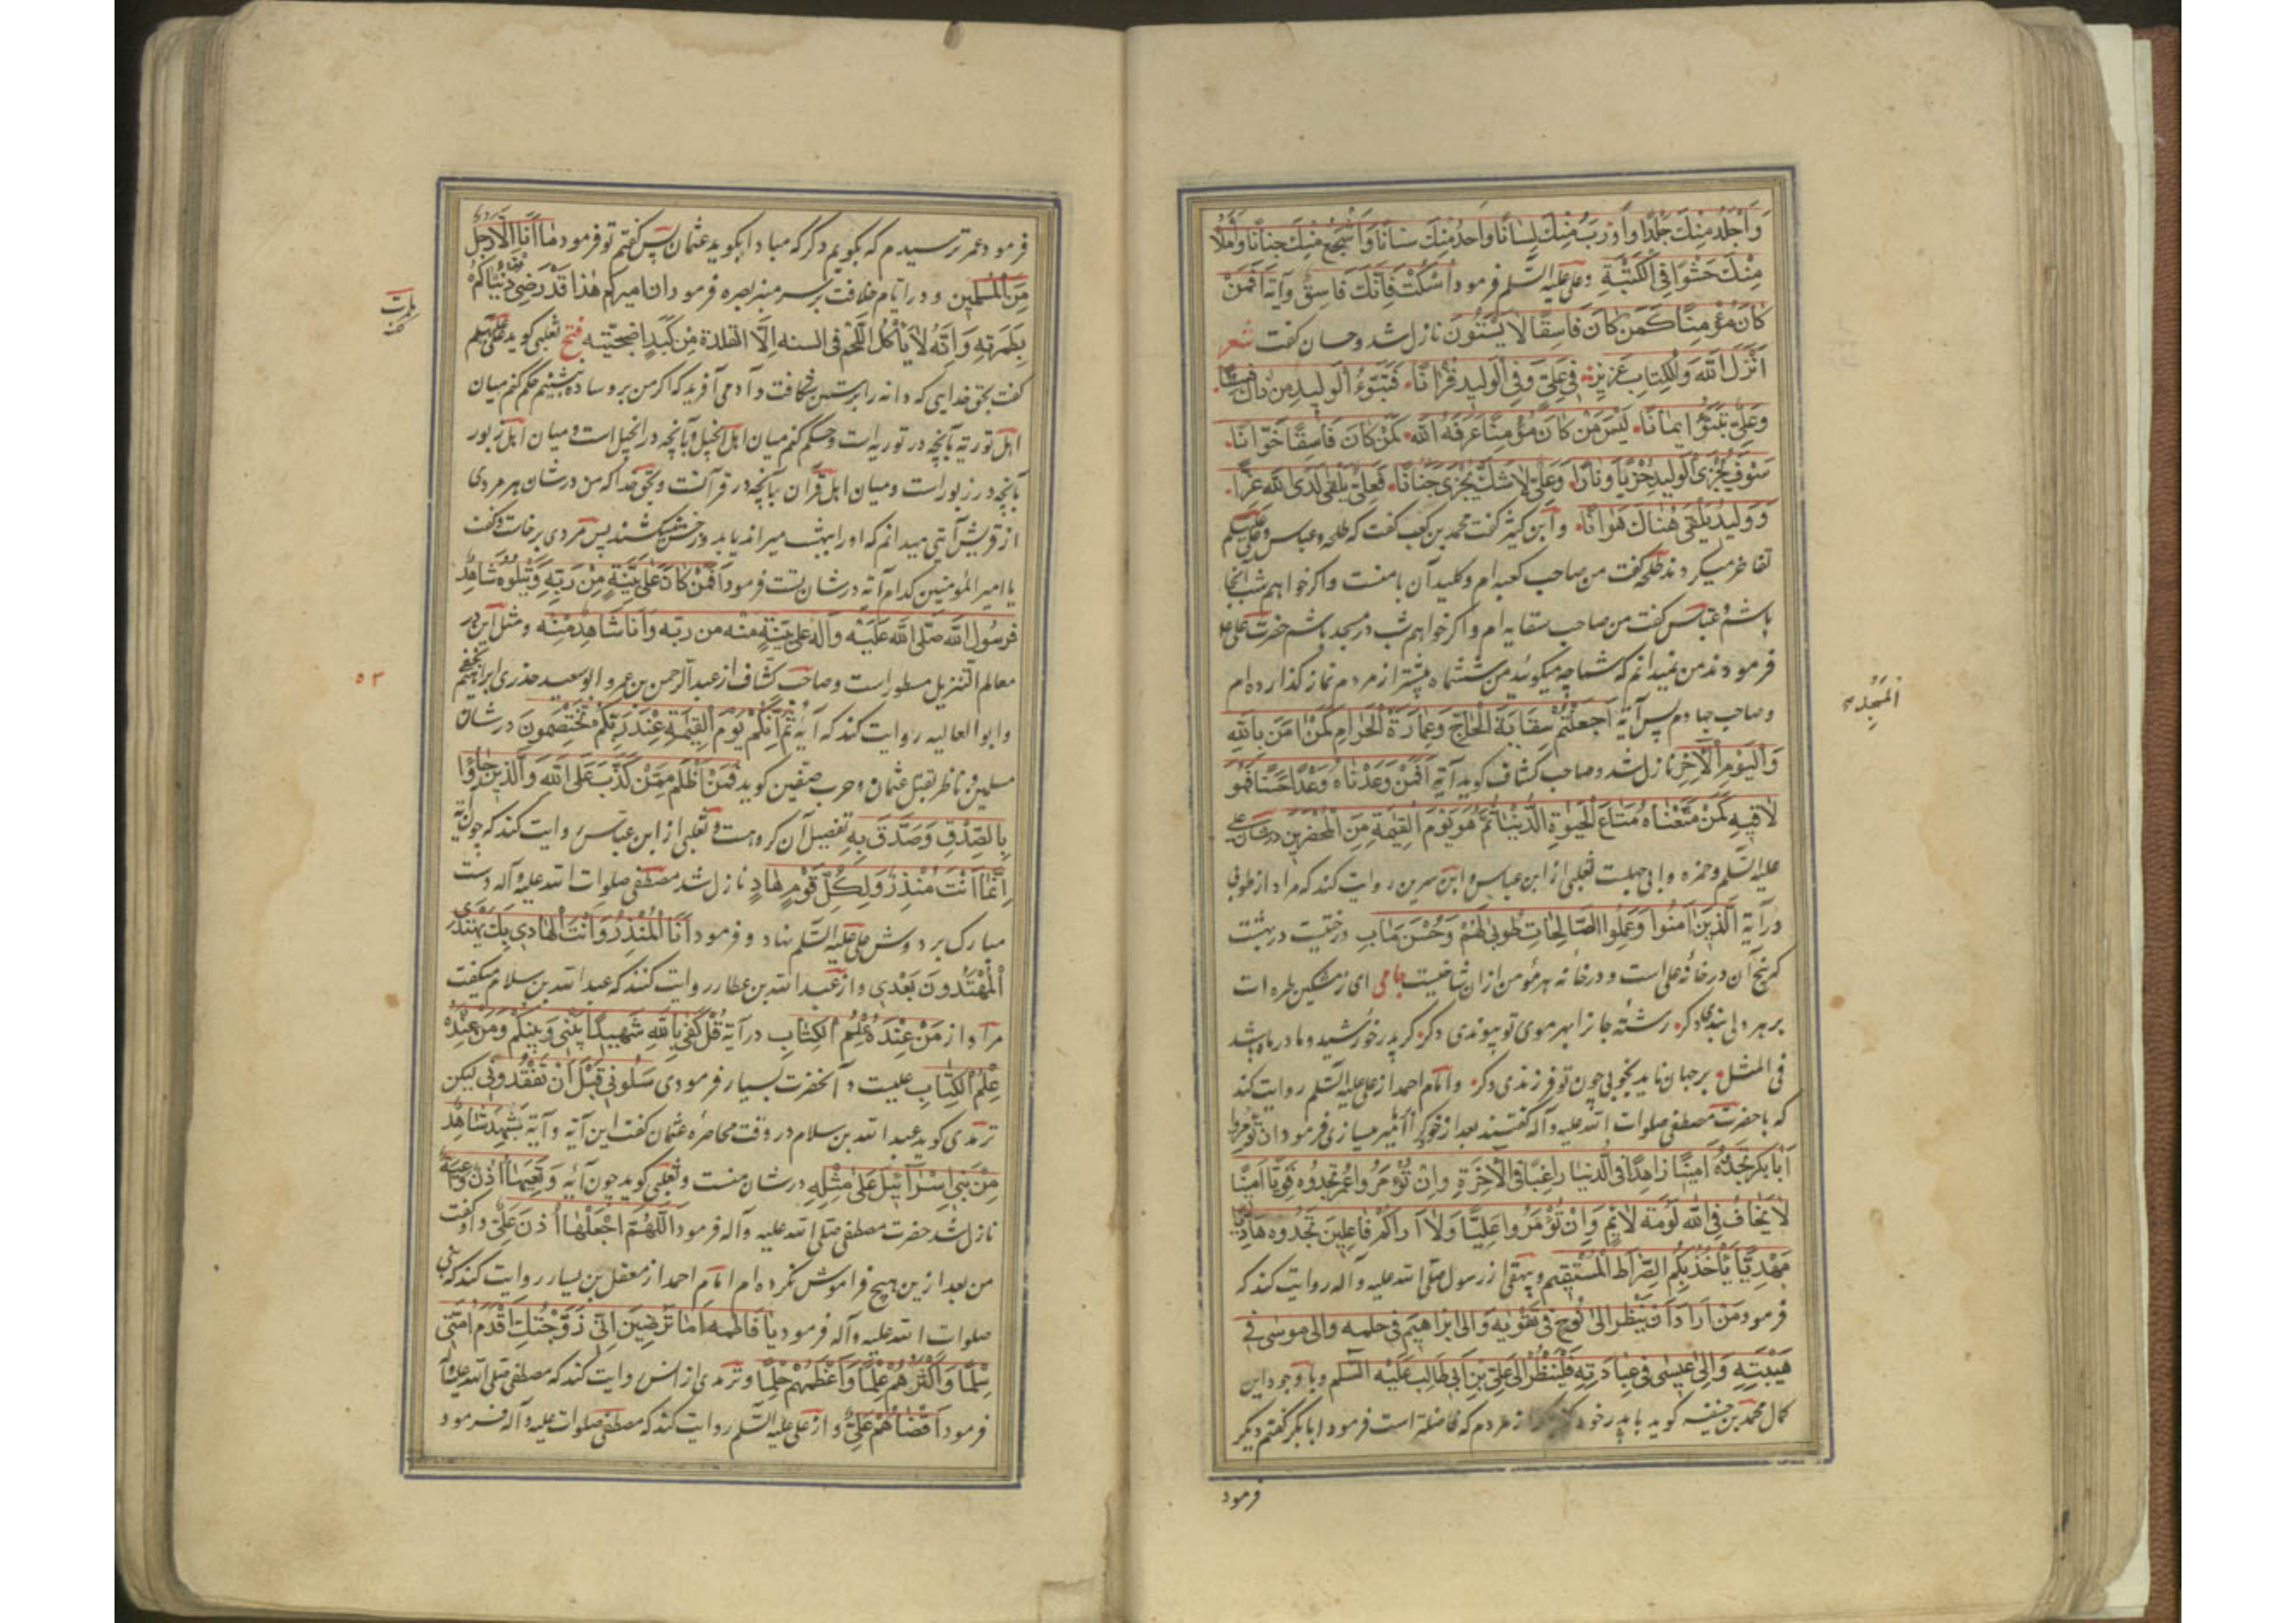 وَاَجْلَدُ مِنْكَ جَلَدًا وَاَذْرَبُ مِنْكَ لِسَانًا وَاَحَدُّ مِنْكَ سِنَانًا وَاَشْجَعُ مِنْكَ جَنَانًا وَاَمْلَأُ
مِنْكَ حَشْوًا فِي الْكَتِيبَةِ وعلى عليه السّلم فرمود اُسْكُتْ فَاِنَّكَ فَاسِقٌ وآية اَفَمَنْ
كَانَ مُؤْمِنًا كَمَنْ كَانَ فَاسِقًا لَا يَسْتَوُنَ نازل شد و حسان كفت شعر
اَنْزَلَ اللّٰهُ وَالْكِتَابِ عَزِيزٌ فِي عَلِيٍّ وَفِي الْوَلِيدِ قُرْاٰنًا فَتَبَوَّءَ الْوَلِيدِ مِنْ ذَاكَ فِسْقًا
وَعَلِيٌّ تَبَوَّءَ اِيمَانًا لَيْسَ مَنْ كَانَ مُؤْمِنًا عَرَفَهُ اللّٰه كَمَنْ كَانَ فَاسِقًا خَوَّانًا
سَوْفَ يُجْزَى الْوَلِيدِ خِزْيًا وَنَارًا وَعَلِيٌّ لَا شَكَّ يُجْزَى جِنَانًا فَعَلِيٌّ يَلْقَى لَدَى اللّٰهِ عِزًّا
وَوَلِيدٌ يَلْقَى هُنَاكَ هَوَانًا وابن كثير كفت محمد بن كعب كفت كه طلحه و عباس و على عليهم
تفاخر ميكردند طلحه كفت من صاحب كعبه ام و كليد آن بامنست و اكر خواهم شب آنجا
باشم و عباس كفت من صاحب سقايه ام و اكر خواهم شب در مسجد باشم حضرت على
فرمودند من نميدانم كه شما چه ميكوئيد من ششماه پيشتر از مردم نماز كذارده ام
و صاحب جهادم پس آية اَجَعَلْتُمْ سِقَايَةَ الْحَاجِّ وَعِمَارَةَ الْحَرَامِ كَمَنْ اٰمَنَ بِاللّٰهِ
المَسْجِدِ
وَالْيَوْمِ الْاٰخِرِ نازل شد و صاحب كشاف كويد آية اَفَمَنْ وَعَدْنَاهُ وَعْدًا حَسَنًا فَهُوَ
لَاقِيهِ كَمَنْ مَتَّعْنَاهُ مَتَاعَ الْحَيٰوةِ الدُّنْيَا ثُمَّ هُوَ يَوْمَ الْقِيٰمَةِ مِنَ الْمُحْضَرِينَ در شان على
عليه السّلم و حمزه و ابى جهلست ثعلبى از ابن عباس و ابن سيرين روايت كند كه مراد از طوبى
در آية اَلَّذِينَ اٰمَنُوا وَعَمِلُوا الصَّالِحَاتِ طُوبٰى لَهُمْ وَحُسْنُ مَاٰبٍ درختيست در بهشت
كه بيخ آن در خانه على است و در خانه هر مؤمن از ان شاخيست جامى اى ز مشكين طره ات
بر هر دلى بندى دكر رشته جانرا بهر موى تو پيوندى دكر كر پدر خورشيد و مادر ماه باشد
فى المثل بر جهان نايد بخوبى چون تو فرزندى دكر و امام احمد از على عليه السّلم روايت كند
كه با حضرت مصطفى صلوات الله عليه و آله كفتند بعد از خود كرا امير ميسازى فرمود ان تؤمروا
اَبَا بَكْرٍ تَجِدُوهُ اَمِينًا زَاهِدًا فِي الدُّنْيَا رَاغِبًا فِي الْاٰخِرَةِ وَاِنْ تُؤَمِّرُوا عُمَرَ تَجِدُوهُ قَوِيًّا اَمِينًا
لَا يَخَافُ فِي اللّٰهِ لَوْمَةَ لَائِمٍ وَاِنْ تُؤَمِّرُوا عَلِيًّا وَلَا اَرَاكُمْ فَاعِلِينَ تَجِدُوهُ هَادِيًا
مَهْدِيًّا يَأْخُذُ بِكُمُ الصِّرَاطَ الْمُسْتَقِيمَ و بيهقى از رسول صلى الله عليه و آله روايت كند كه
فرمود مَنْ اَرَادَ اَنْ يَنْظُرَ اِلٰى نُوحٍ فِي تَقْوٰيهِ وَاِلٰى اِبْرَاهِيمَ فِي حِلْمِهِ وَاِلٰى مُوسٰى فِي
هَيْبَتِهِ وَاِلٰى عِيسٰى فِي عِبَادَتِهِ فَلْيَنْظُرْ اِلٰى عَلِيِّ بْنِ اَبِي طَالِبٍ عَلَيْهِ السَّلٰم و با وجود اين
كمال محمد بن حنيفه كويد با پدر خود از مردم كه فاضلتر است فرمود ابا بكر كفتم ديكر
فرمود
فرمود عمر ترسيدم كه بكويم دكر كه مبادا بكويد عثمان پس كفتم تو فرمود مَا اَنَا اِلَّا رَجُلٌ
مِنَ الْمُسْلِمِينَ و در ايام خلافت بر سر منبر بصره فرمود ان اميركم هٰذَا قَدْ رَضِيَ مِنْ دُنْيَاكُمْ
بِطِمْرَيْهِ وَاَنَّهُ لَا يَأْكُلُ اللَّحْمَ فِي السنه اِلَّا الفلذة مِنْ كَبِدِ اضحيّته فتح ثعلبى كويد على عليه السلم
كفت بحق خدايى كه دانه را برستن شكافت و آدمى آفريد كه اكر من بر وساده بنشينم حكم كنم ميان
اهل تورية بآنچه در توريه است و حكم كنم ميان اهل انجيل بآنچه در انجيل است و ميان اهل زبور
بآنچه در زبور است و ميان اهل قرآن بآنچه در قرآنست و بحق خدا كه من در شان هر مردى
از قريش آيتى ميدانم كه او را ببهشت ميراند يا بدوزخش ميكشند پس مردى برخاست و كفت
يا امير المؤمنين كدام آية در شان تست فرمود اَفَمَنْ كَانَ عَلٰى بَيِّنَةٍ مِنْ رَبِّهِ وَيَتْلُوهُ شَاهِدٌ
فرسول الله صَلَّى اللّٰه عَلَيْهِ وَاٰلِهِ عَلٰى بَيِّنَةٍ مِنْ رَبِّهِ وَاَنَا شَاهِدٌ مِنْهُ و مثل اين در
معالم التنزيل مسطور است و صاحب كشاف از عبد الرحمن بن عمر و ابو سعيد خدرى و ابراهيم نخعى
٥٣
و ابو العاليه روايت كند كه آية ثُمَّ اِنَّكُمْ يَوْمَ الْقِيٰمَةِ عِنْدَ رَبِّكُمْ تَخْتَصِمُونَ در شان
مسلمين و ناظر بقتل عثمان و حرب صفين كويد فَمَنْ اَظْلَمُ مِمَّنْ كَذَبَ عَلَى اللّٰهِ وَالَّذِينَ جَاؤُا
بِالصِّدْقِ وَصَدَّقَ بِهِ تفصيل آن كروهست و ثعلبى از ابن عباس روايت كند كه چون آية
اِنَّمَا اَنْتَ مُنْذِرٌ وَلِكُلِّ قَوْمٍ هَادٍ نازل شد مصطفى صلوات الله عليه و آله دست
مبارك بر دوش على عليه السّلم نهاد و فرمود اَنَا الْمُنْذِرُ وَاَنْتَ الْهَادِي بِكَ يَهْتَدِي
الْمُهْتَدُونَ بَعْدِي و از عبد الله بن عطار روايت كنند كه عبد الله بن سلام ميكفت
مراد از مَنْ عِنْدَهُ عِلْمُ الْكِتَابِ در آية قُلْ كَفٰى بِاللّٰهِ شَهِيدًا بَيْنِي وَبَيْنَكُمْ وَمَنْ عِنْدَهُ
عِلْمُ الْكِتَابِ عليست و آنحضرت بسيار فرمودى سَلُونِي قَبْلَ اَنْ تَفْقُدُونِي ليكن
ترمدى كويد عبد الله بن سلام در وقت محاصره عثمان كفت اين آية و آية يَشْهَدُ شَاهِدٌ
مِنْ بَنِي اِسْرَائِيلَ عَلٰى مِثْلِهِ در شان منست و ثعلبى كويد چون آيه وَتَعِيَهَا اُذُنٌ وَاعِيَةٌ
نازل شد حضرت مصطفى صلى الله عليه و آله فرمود اَللّٰهُمَّ اجْعَلْهَا اُذُنَ عَلِيٍّ و او كفت
من بعد ازين هيچ فراموش نكرده ام امام احمد از معقل بن يسار روايت كند كه نبى
صلوات الله عليه و آله فرمود يَا فَاطِمَه اَمَا تَرْضَيْنَ اِنِّي زَوَّجْتُكِ اَقْدَمَ اُمَّتِي
سِلْمًا وَاَكْثَرَهُمْ عِلْمًا وَاَعْظَمَهُمْ حِلْمًا و ترمدى از انس روايت كند كه مصطفى صلى الله عليه و آله
فرمود اَقْضَاهُمْ عَلِيٌّ و از على عليه السّلم روايت كند كه مصطفى صلوات عليه و آله فرمود